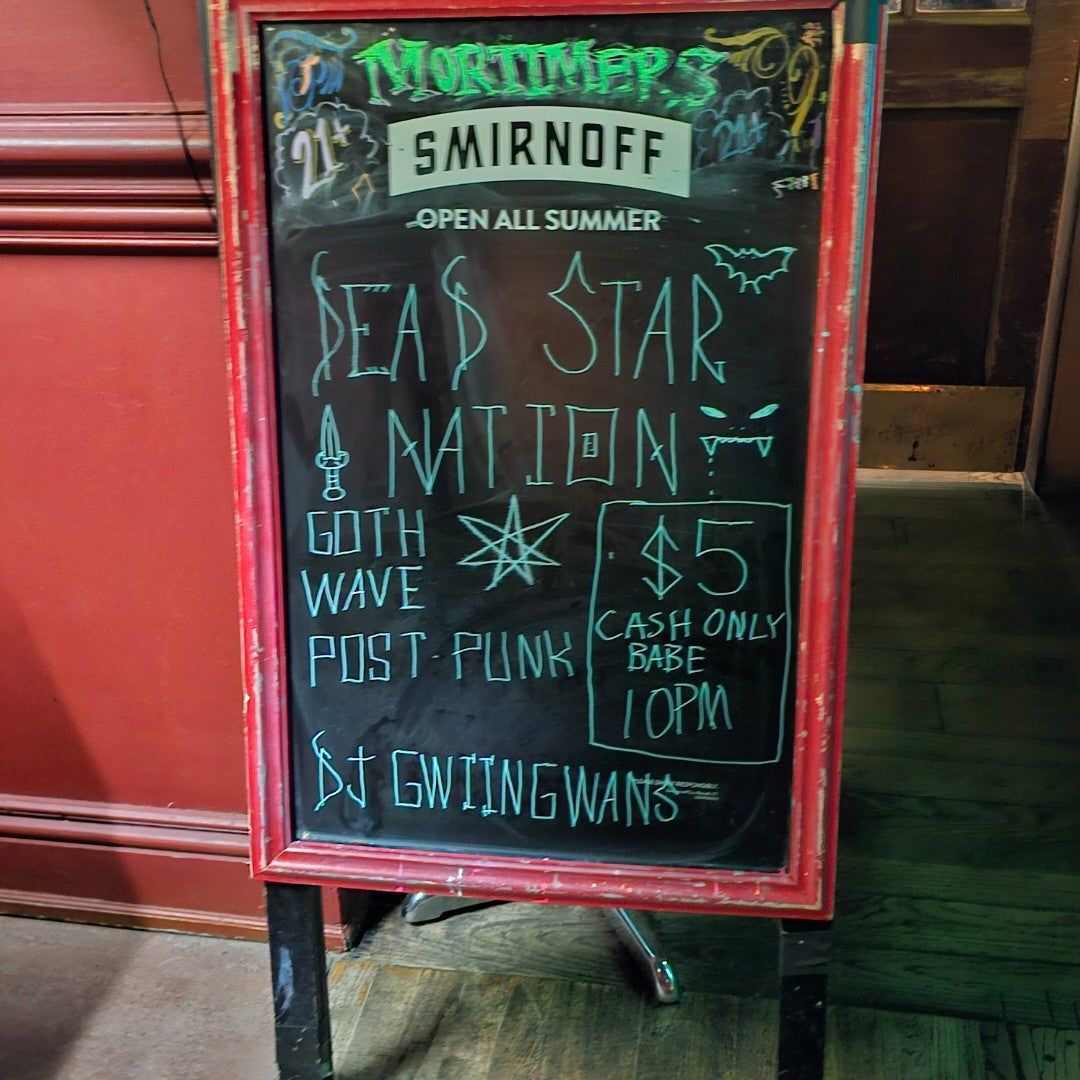 MORTIMERS
21+
21+
SMIRNOFF
OPEN ALL SUMMER
DEAD STAR
NATION
GOTH
WAVE
POST-PUNK
$5
CASH ONLY
BABE
10PM
DJ GWIINGWANS